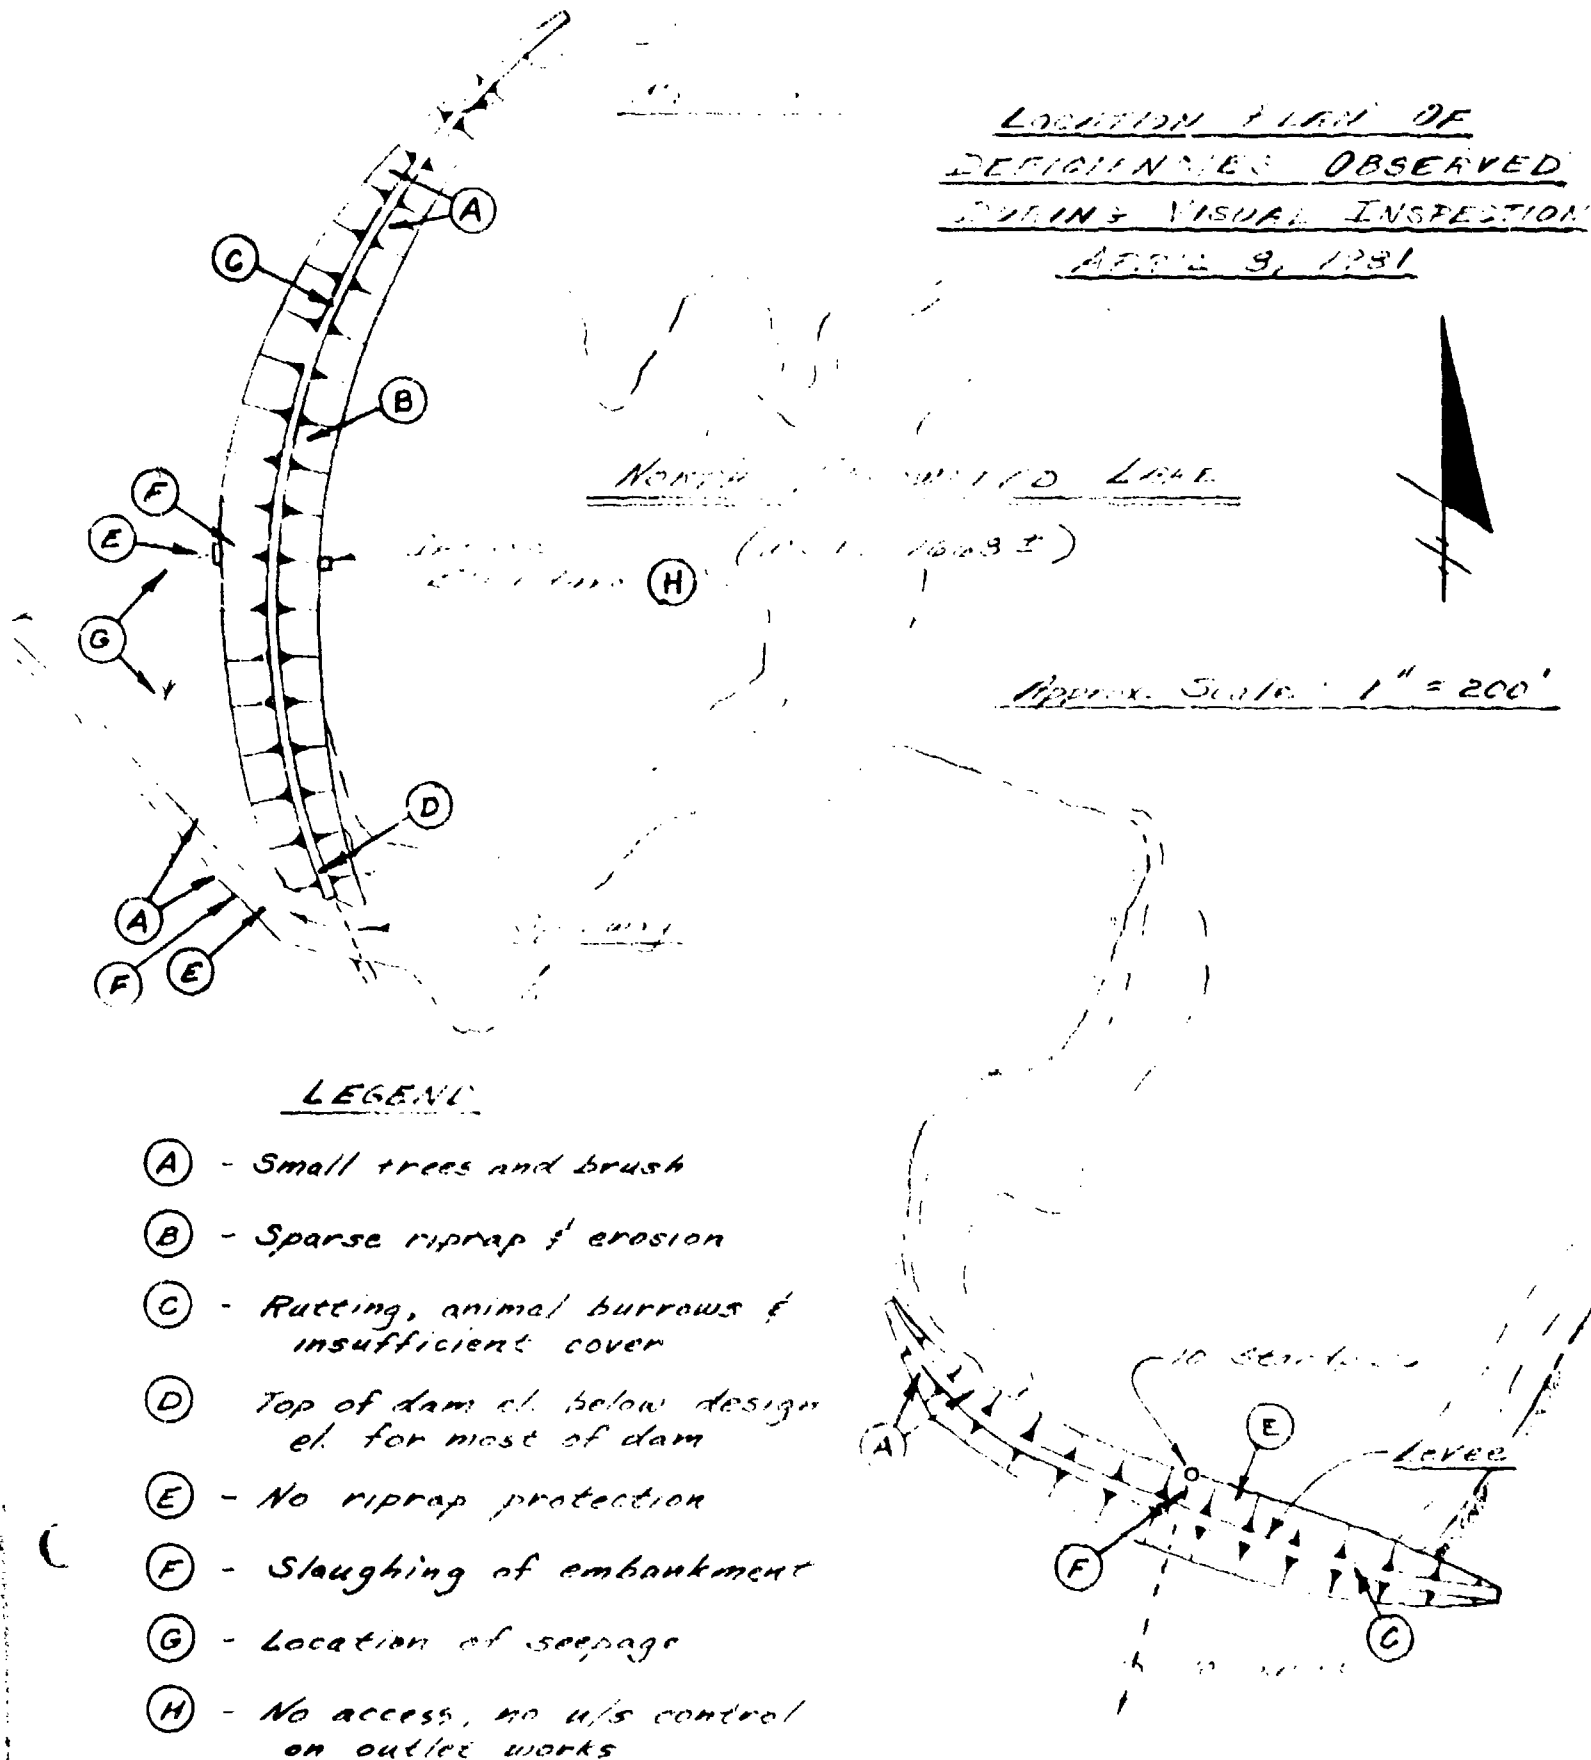 LOCATION PLAN OF
DEFICIENCIES OBSERVED
DURING VISUAL INSPECTION
APRIL 8, 1981
A
C
B
F
E
NORTH LAKE
H
G
Approx. Scale: 1" = 200'
D
A
Spillway
F
E
LEGEND
A - Small trees and brush
B - Sparse riprap & erosion
C - Rutting, animal burrows &
insufficient cover
D Top of dam el. below design
el. for most of dam
E - No riprap protection
F - Slaughing of embankment
G - Location of seepage
H - No access, no u/s control
on outlet works
A
E
Levee
F
C